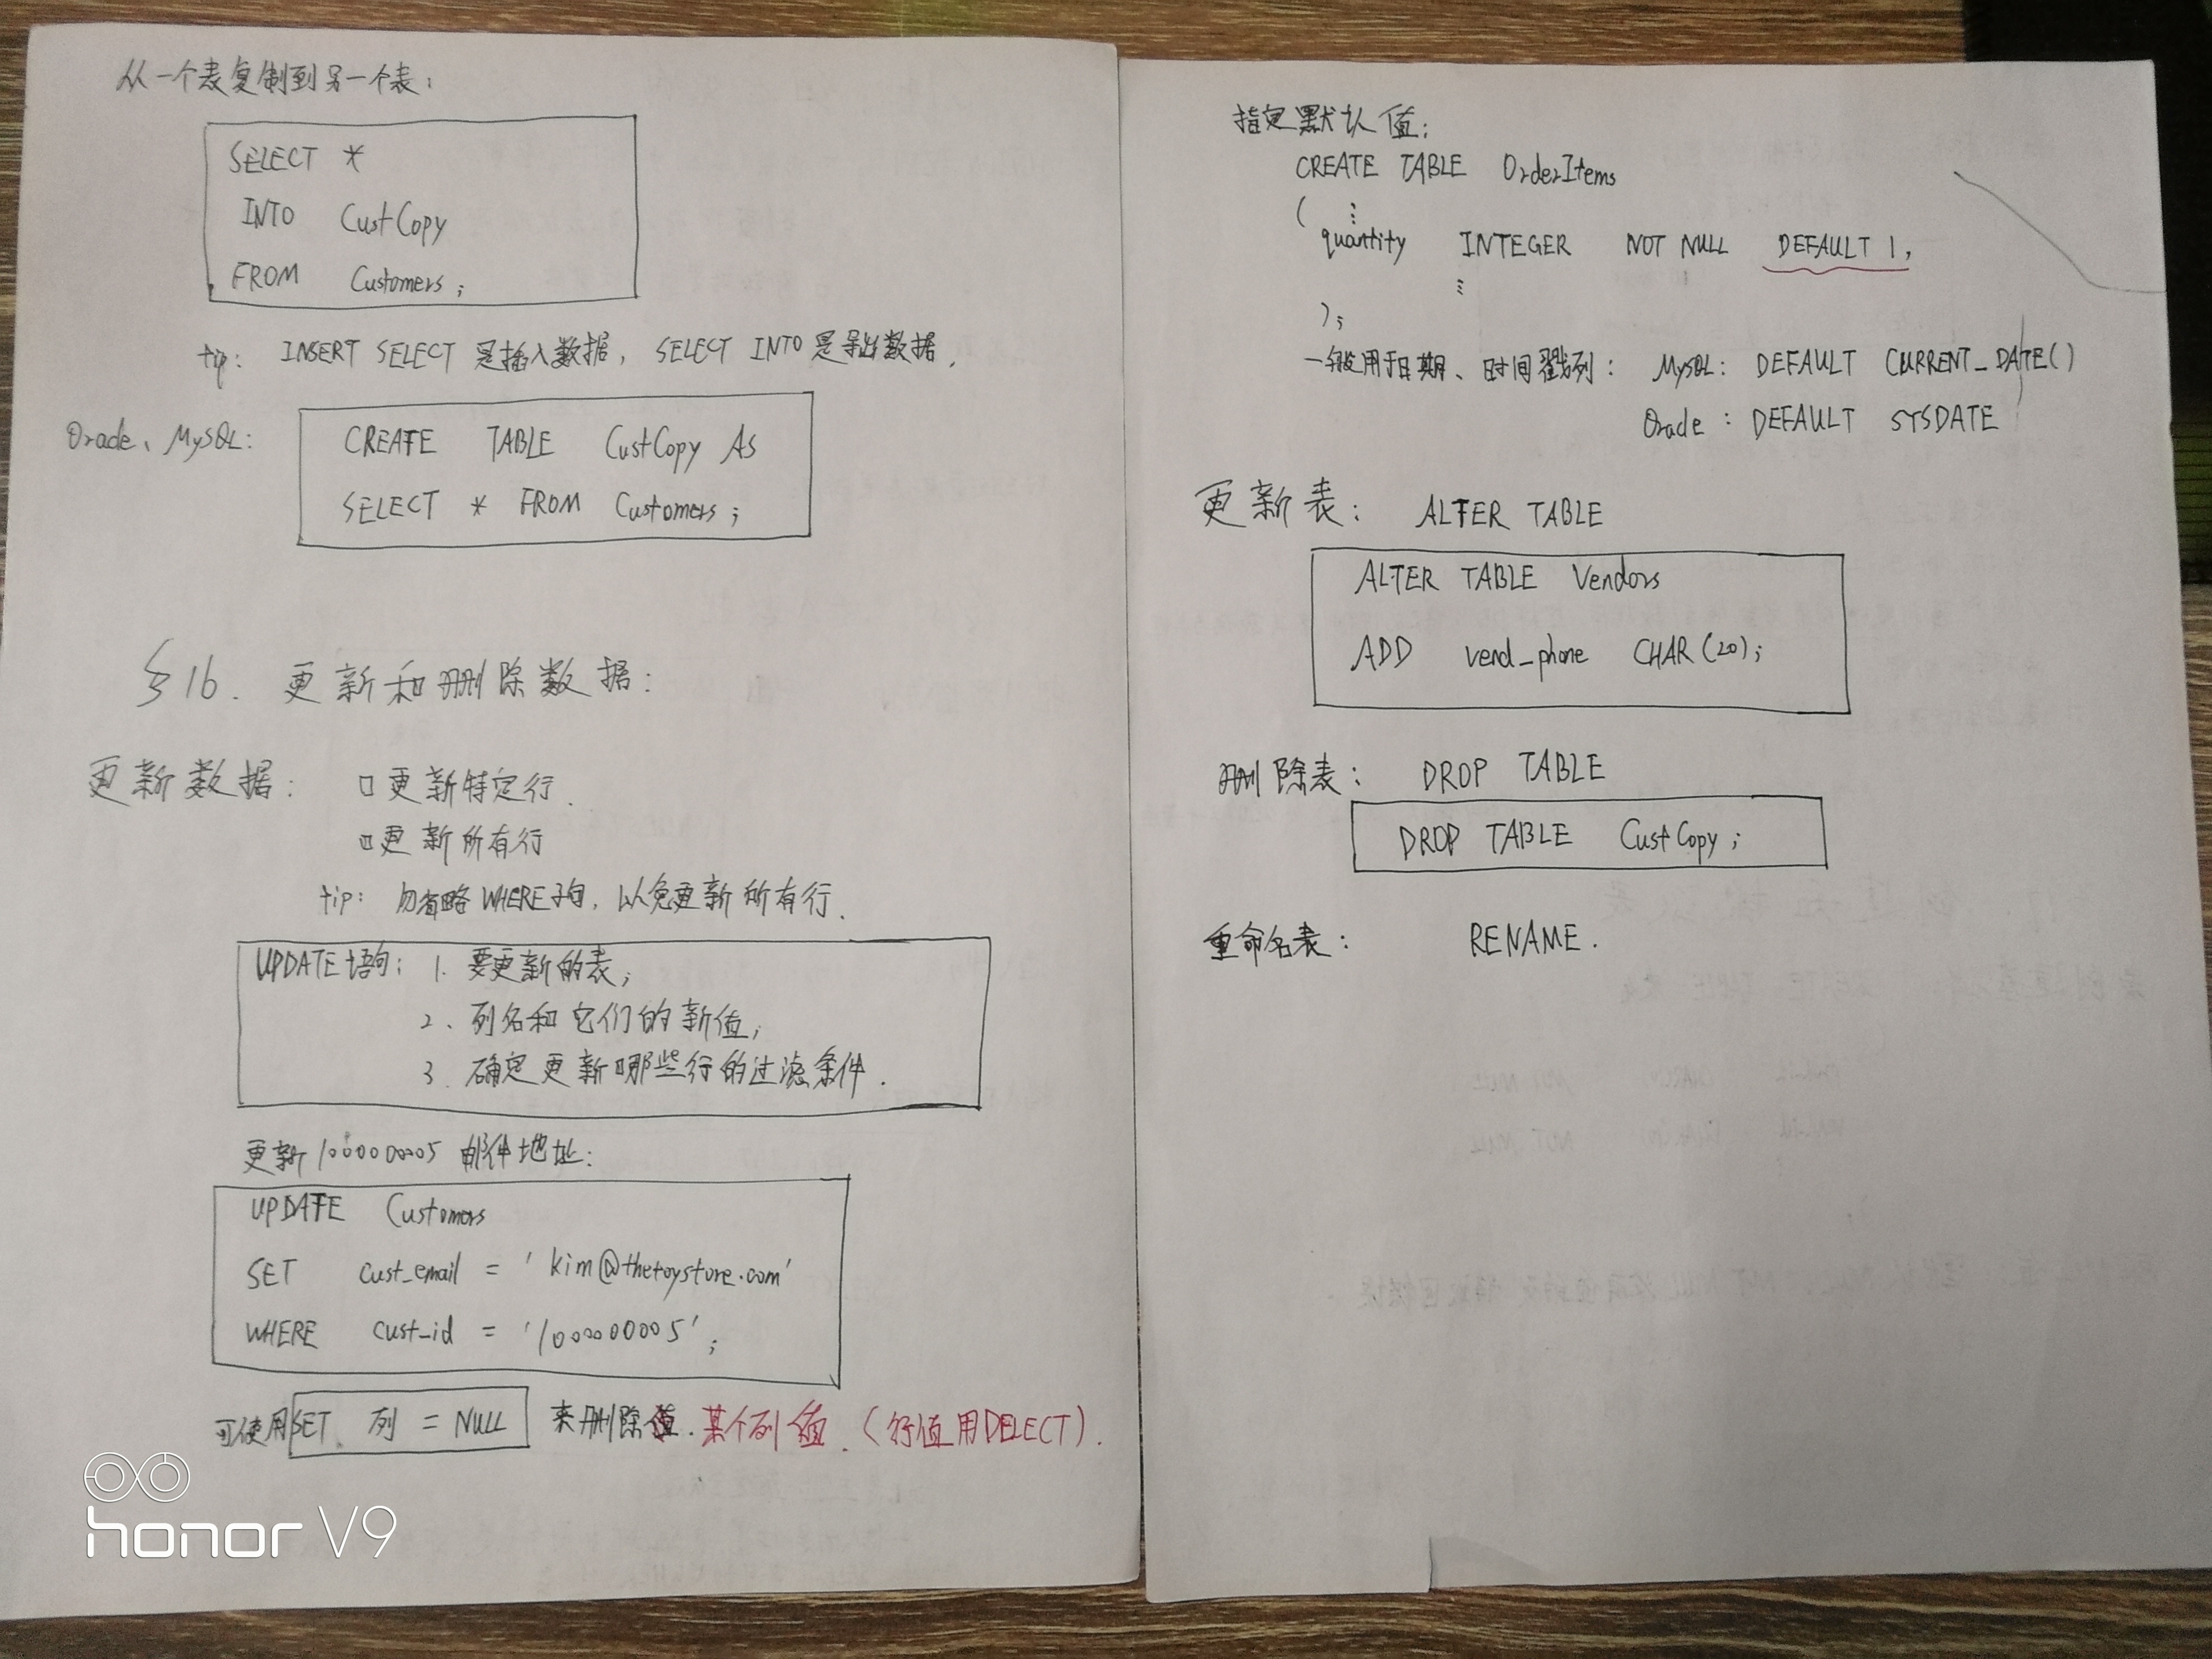 从一个表复制到另一个表：
SELECT *
INTO CustCopy
FROM Customers;
tip: INSERT SELECT 是插入数据，SELECT INTO 是导出数据.
Oracle、MySQL:
CREATE TABLE CustCopy As
SELECT * FROM Customers;
§16. 更新和删除数据：
更新数据： 更新特定行.
更新所有行
tip: 勿省略WHERE子句，以免更新所有行.
UPDATE语句：1. 要更新的表;
2、列名和它们的新值;
3. 确定更新哪些行的过滤条件.
更新1000000005 邮件地址：
UPDATE Customers
SET cust_email = 'kim@thetoystore.com'
WHERE cust_id = '1000000005';
可使用SET 列 = NULL 来删除值. 某个列值.（行值用DELECT）.
honor V9
指定默认值：
CREATE TABLE OrderItems
( ⋮
quantity INTEGER NOT NULL DEFAULT 1,
⋮
);
一般用于日期、时间戳列： MySQL: DEFAULT CURRENT_DATE()
Oracle: DEFAULT SYSDATE
更新表： ALTER TABLE
ALTER TABLE Vendors
ADD vend_phone CHAR(20);
删除表： DROP TABLE
DROP TABLE CustCopy;
重命名表： RENAME.